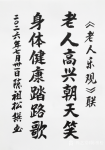 《老人乐观》联
老人高兴朝天笑
身体健康踏路歌
二〇二六年七月廿日陈祖松撰并